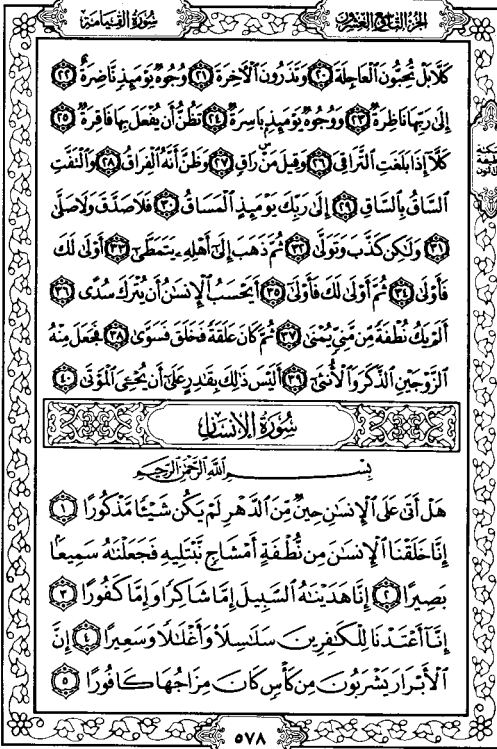 الجزء التاسع والعشرون
سورة القيامة
كَلَّا بَلْ تُحِبُّونَ ٱلْعَاجِلَةَ ٢٠ وَتَذَرُونَ ٱلْآخِرَةَ ٢١ وُجُوهٌ يَوْمَئِذٍ نَّاضِرَةٌ ٢٢
إِلَىٰ رَبِّهَا نَاظِرَةٌ ٢٣ وَوُجُوهٌ يَوْمَئِذٍۭ بَاسِرَةٌ ٢٤ تَظُنُّ أَن يُفْعَلَ بِهَا فَاقِرَةٌ ٢٥
كَلَّآ إِذَا بَلَغَتِ ٱلتَّرَاقِيَ ٢٦ وَقِيلَ مَنْۜ رَاقٍ ٢٧ وَظَنَّ أَنَّهُ ٱلْفِرَاقُ ٢٨ وَٱلْتَفَّتِ
ٱلسَّاقُ بِٱلسَّاقِ ٢٩ إِلَىٰ رَبِّكَ يَوْمَئِذٍ ٱلْمَسَاقُ ٣٠ فَلَا صَدَّقَ وَلَا صَلَّىٰ
٣١ وَلَٰكِن كَذَّبَ وَتَوَلَّىٰ ٣٢ ثُمَّ ذَهَبَ إِلَىٰٓ أَهْلِهِۦ يَتَمَطَّىٰٓ ٣٣ أَوْلَىٰ لَكَ
فَأَوْلَىٰ ٣٤ ثُمَّ أَوْلَىٰ لَكَ فَأَوْلَىٰٓ ٣٥ أَيَحْسَبُ ٱلْإِنسَٰنُ أَن يُتْرَكَ سُدًى ٣٦
أَلَمْ يَكُ نُطْفَةً مِّن مَّنِيٍّ يُمْنَىٰ ٣٧ ثُمَّ كَانَ عَلَقَةً فَخَلَقَ فَسَوَّىٰ ٣٨ فَجَعَلَ مِنْهُ
ٱلزَّوْجَيْنِ ٱلذَّكَرَ وَٱلْأُنثَىٰٓ ٣٩ أَلَيْسَ ذَٰلِكَ بِقَٰدِرٍ عَلَىٰٓ أَن يُحْـِۧيَ ٱلْمَوْتَىٰ ٤٠
سُورَةُ الْإِنسَانِ
بِسْمِ ٱللَّهِ ٱلرَّحْمَٰنِ ٱلرَّحِيمِ
هَلْ أَتَىٰ عَلَى ٱلْإِنسَٰنِ حِينٌ مِّنَ ٱلدَّهْرِ لَمْ يَكُن شَيْـًٔا مَّذْكُورًا ١
إِنَّا خَلَقْنَا ٱلْإِنسَٰنَ مِن نُّطْفَةٍ أَمْشَاجٍ نَّبْتَلِيهِ فَجَعَلْنَٰهُ سَمِيعًۢا
بَصِيرًا ٢ إِنَّا هَدَيْنَٰهُ ٱلسَّبِيلَ إِمَّا شَاكِرًا وَإِمَّا كَفُورًا ٣
إِنَّآ أَعْتَدْنَا لِلْكَٰفِرِينَ سَلَٰسِلَا۟ وَأَغْلَٰلًا وَسَعِيرًا ٤ إِنَّ
ٱلْأَبْرَارَ يَشْرَبُونَ مِن كَأْسٍ كَانَ مِزَاجُهَا كَافُورًا ٥
٥٧٨